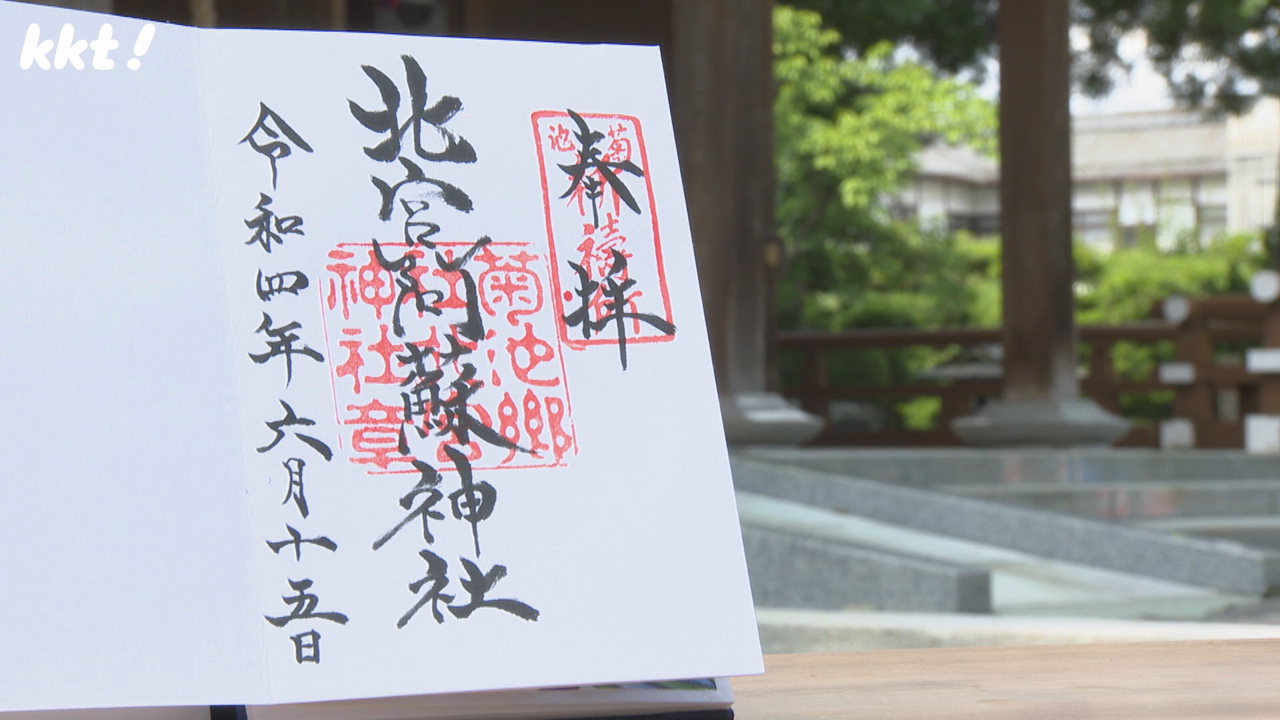 kkt!
奉拝
北宮阿蘇神社
令和四年六月十五日
菊池
菊池郷
神社章